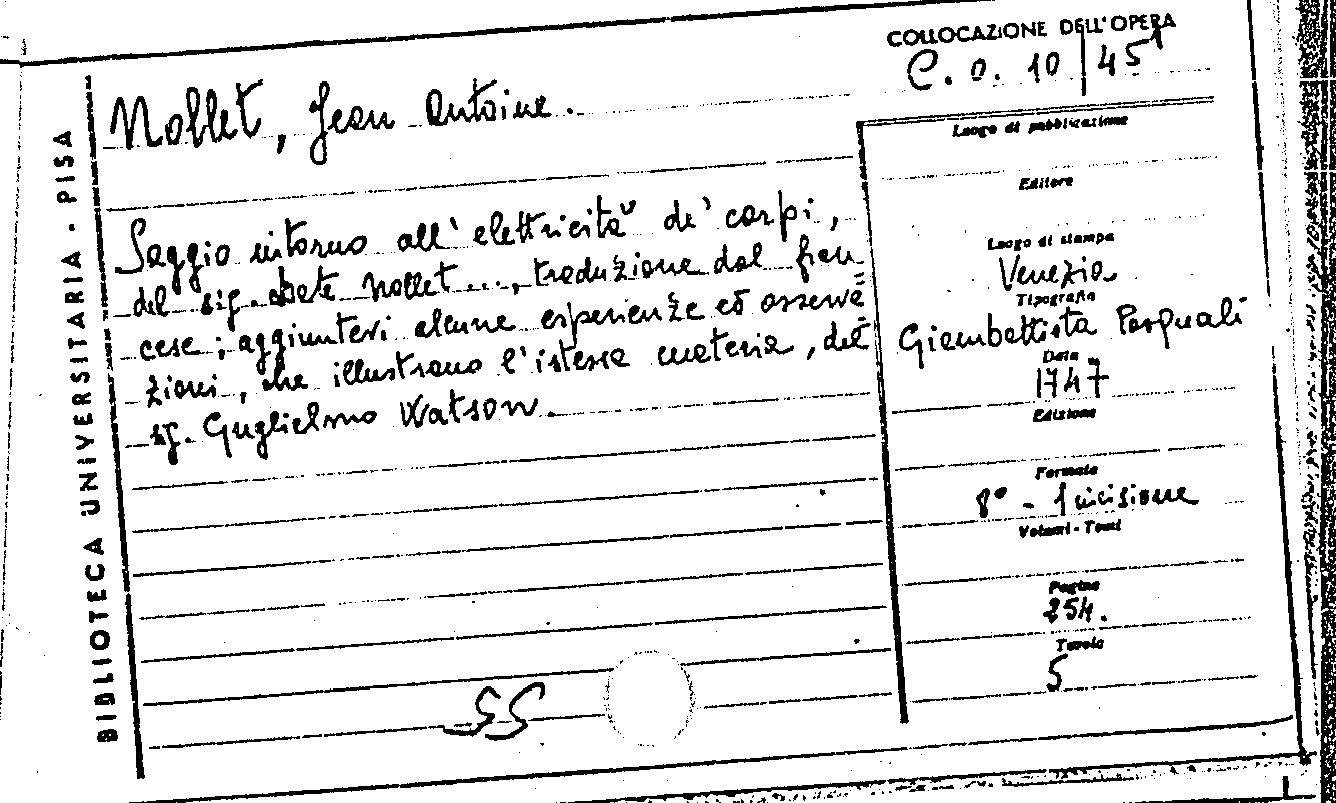 BIBLIOTECA UNIVERSITARIA - PISA
COLLOCAZIONE DELL'OPERA
C. o. 10 | 45¹
Nollet, Jean Antoine.
Saggio intorno all' elettricità de' corpi,
del sig. Abate Nollet..., traduzione dal fran
cese; aggiuntevi alcune esperienze ed osserva
zioni, che illustrano l'istessa materia, del
sig. Guglielmo Watson.
SS
Luogo di pubblicazione
Editore
Luogo di stampa
Venezia
Tipografia
Giambattista Pasquali
Data
1747
Edizione
Formato
8° - 1 incisione
Volumi - Tomi
Pagine
254.
Tavole
5